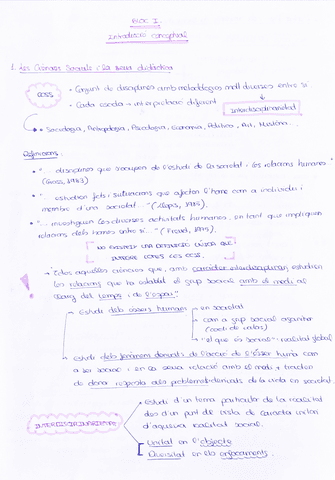 BLOC I.
Introducció conceptual
1. Les Ciències Socials i la seva didàctica
CCSS
• Conjunt de disciplines amb metodologies molt diverses entre si
• Cada escola → interpretació diferent
Interdisciplinarietat
• Sociologia, Antropologia, Psicologia, Economia, Política, Art, Història...
Definicions:
• "... disciplines que s'ocupen de l'estudi de la societat i les relacions humanes"
(Gross, 1983)
• "... estudien fets i situacions que afecten l'home com a individu i
membre d'una societat..." (1975).
• "... investiguen les diverses activitats humanes, en tant que impliquen
relacions dels homes entre sí..." (1975).
NO EXISTEIX UNA DEFINICIÓ ÚNICA QUE
TOTES LES CCSS.
Totes aquelles ciències que, amb caràcter interdisciplinari, estudien
les relacions que ha establert el grup social amb el medi al
llarg del temps i de l'espai"
→ Estudi dels éssers humans → en societat
→ com a grup social organitzat
→ "el que és social" = realitat global
→ Estudi dels fenòmens derivats de l'acció de l'ésser humà com
a ser social i en la seva relació amb el medi i tracten
de donar resposta als problemes derivats de la vida en societat.
INTERDISCIPLINARIETAT
• Estudi d'un tema particular de la realitat
des d'un punt de vista de caràcter unitari
d'aquesta realitat social.
Unitat en l'objecte
Diversitat en els enfocaments.